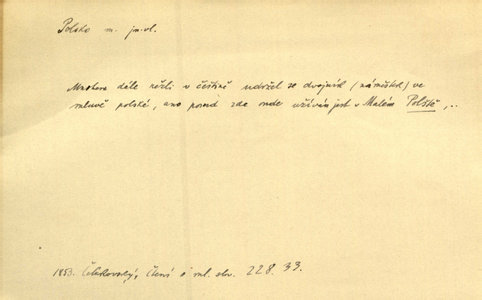 Polsko n. jm. vl.
Mnohem déle nežli v češtině udržel se dvojník (náměstek) ve
mluvě polské, ano posud zde onde užíván jest v Malém Polště, ..
1853. Čelakovský, Čtení o ml. slov. 228. 33.